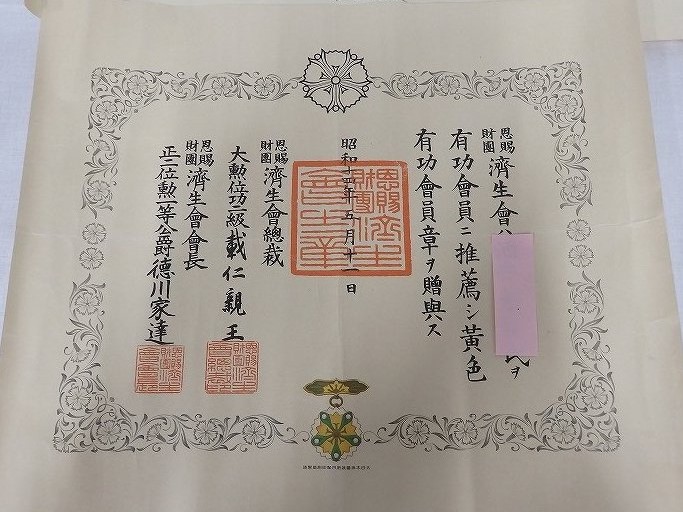 恩賜財團濟生會
氏ヲ
有功會員ニ推薦シ黃色
有功會員章ヲ贈與ス
昭和十四年五月十一日
恩賜財團濟生會總裁
大勲位功一級載仁親王
恩賜財團濟生會會長
正二位勲一等公爵德川家達